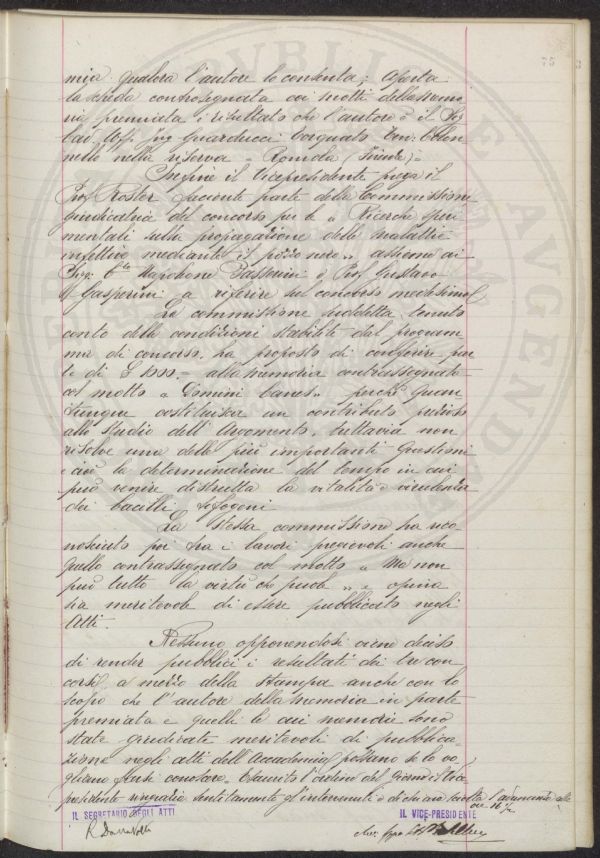 75
mia qualora l'autore lo consenta; aperta
la scheda controsegnata coi motti della memo
ria premiata è risultato che l'autore è il Sig
Cav. Uff. Ing Guarducci Torquato Ten: Colon
nello nella riserva = Romola (Firenze) =
Infine il Vicepresidente prega il
Prof Roster facente parte della Commissione
giudicatrice del concorso per le "Ricerche speri
mentali sulla propagazione delle malattie
infettive mediante il pozzo nero" assieme ai
Sigg: Cte Napoleone Passerini e Prof Gustavo
Gasperini a riferire sul concorso medesimo.
La commissione suddetta, tenuto
conto delle condizioni stabilite dal program
ma di concorso, ha proposto di conferire par
te di £ 1000.= alla memoria contrassegnata
col motto "Domini Canes" perchè quan
tunque costituisca un contributo
allo studio dell'argomento, tuttavia non
risolve una delle più importanti questioni
e cioè la determinazione del tempo in cui
può venire distrutta la vitalità e virulenza
dei bacilli tifogeni.
La stessa commissione ha rico
nosciuto poi fra i lavori pregievoli anche
quello contrassegnato col motto "Ma non
può tutto la virtù che vuole" e opina
sia meritevole di essere pubblicato negli
Atti.
Nessuno opponendosi viene deciso
di render pubblici i resultati dei tre con
corsi a mezzo della stampa anche con lo
scopo che l'autore della memoria in parte
premiata e quelli le cui memorie sono
state giudicate meritevoli di pubblica-
zione negli atti dell'Accademia possano se lo vo
gliono farsi conoscere. Esaurito l'ordine del giorno il Vice
presidente ringrazia sentitamente gl'intervenuti e dichiara sciolta l'adunanza alle
ore 16 ½
IL SEGRETARIO DEGLI ATTI
IL VICE-PRESIDENTE